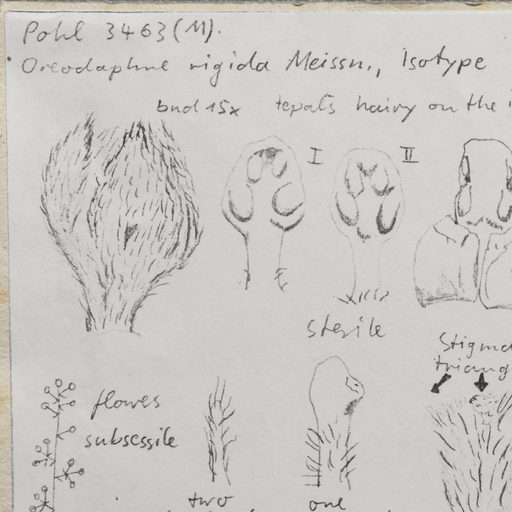 Pohl 3463 (M).
Oreodaphne rigida Meissn., Isotype
bud 15x tepals hairy on the
I II
sterile
Stigma
triang
flowes
subsessile
two one